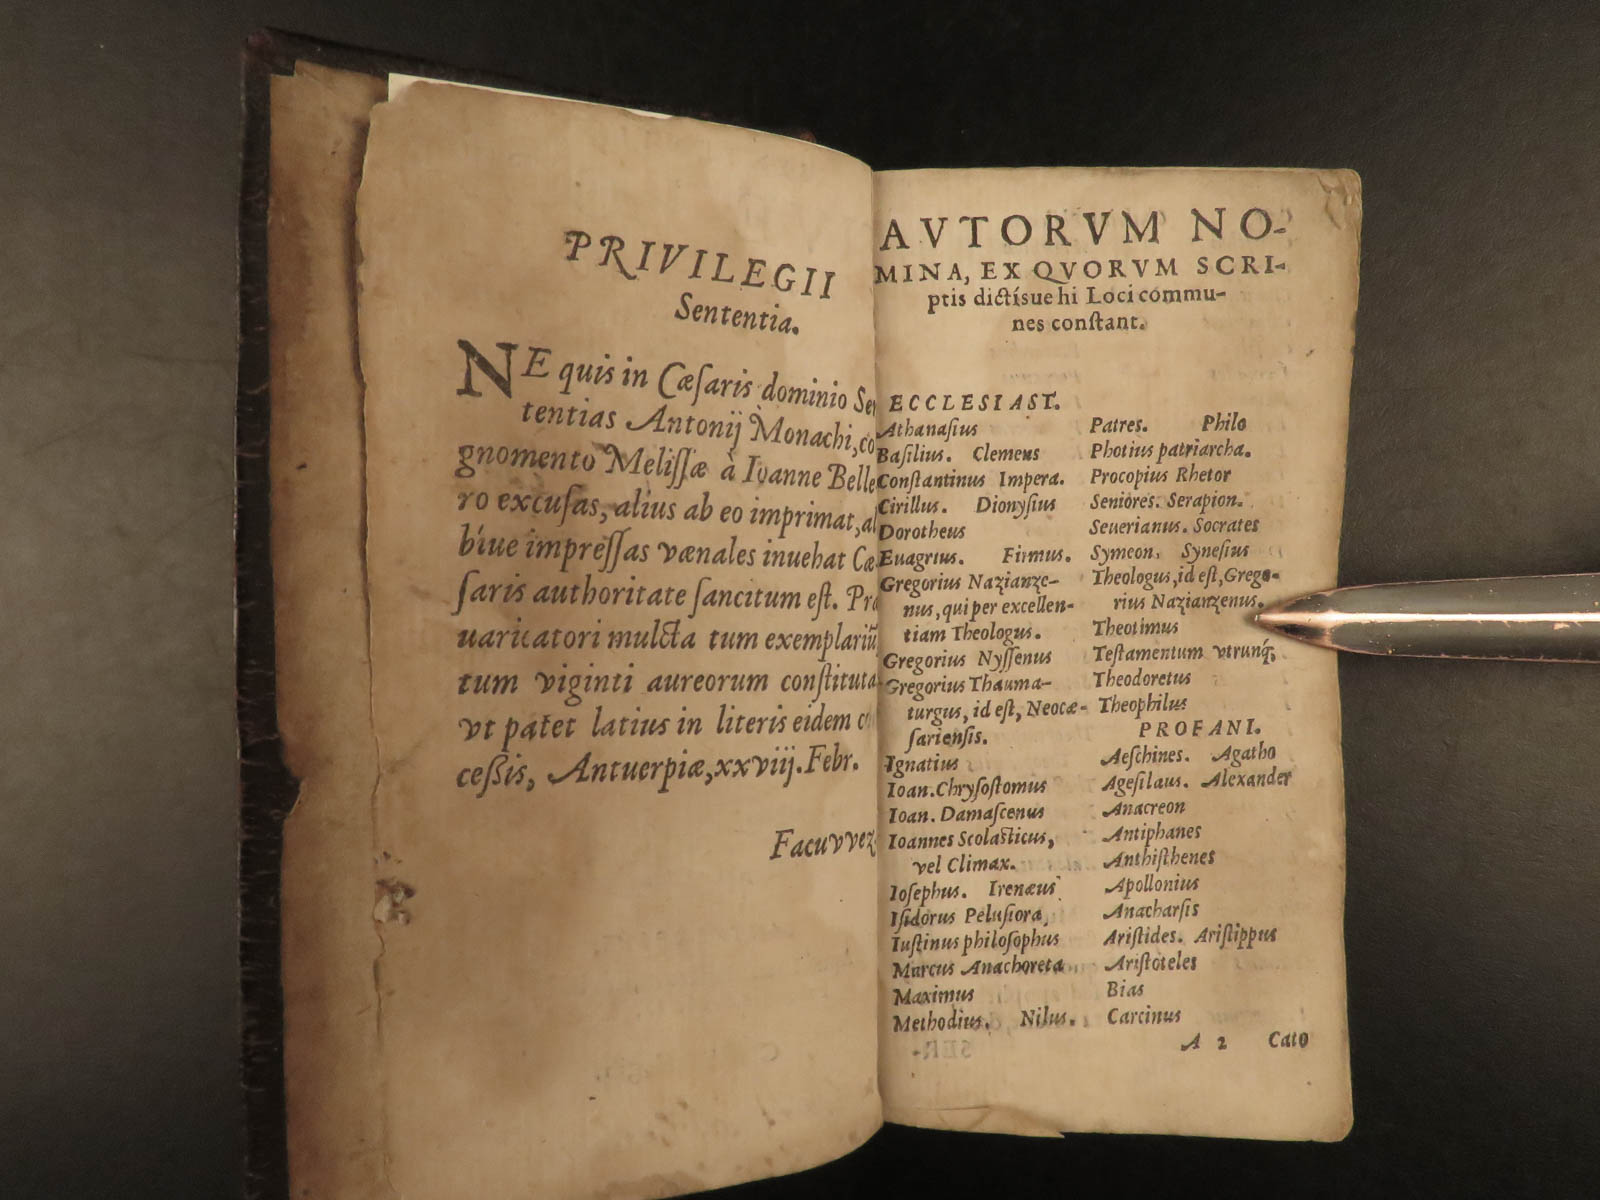 PRIVILEGII
Sententia.
NE quis in Cæſaris dominio Sen
tentias Antonij Monachi, co
gnomento Meliſſæ à Ioanne Belle
ro excuſas, alius ab eo imprimat, al
bíue impreſſas vænales inuehat Cæ
ſaris authoritate ſancitum eſt. Præ
uaricatori mulcta tum exemplariũ
tum viginti aureorum conſtituta
vt patet latius in literis eidem
ceſsis, Antuerpiæ, xxviij. Febr.
Facuvvez
AVTORVM NO-
MINA, EX QVORVM SCRI-
ptis dictíſue hi Loci commu-
nes conſtant.
ECCLESIAST.
Athanaſius
Baſilius. Clemens
Conſtantinus Impera.
Cirillus. Dionyſius
Dorotheus
Euagrius. Firmus.
Gregorius Nazianze-
nus, qui per excellen-
tiam Theologus.
Gregorius Nyſſenus
Gregorius Thauma-
turgus, id eſt, Neocæ-
ſarienſis.
Ignatius
Ioan. Chryſoſtomus
Ioan. Damaſcenus
Ioannes Scolaſticus,
vel Climax.
Ioſephus. Irenæus
Iſidorus Peluſiora,
Iuſtinus philoſophus
Marcus Anachoreta
Maximus
Methodius. Nilus.
Patres. Philo
Photius patriarcha.
Procopius Rhetor
Seniores. Serapion.
Seuerianus. Socrates
Symeon. Syneſius
Theologus, id eſt, Grego-
rius Nazianzenus.
Theotimus
Teſtamentum vtrunq́;
Theodoretus
Theophilus
PROFANI.
Aeſchines. Agatho
Ageſilaus. Alexander
Anacreon
Antiphanes
Anthiſthenes
Apollonius
Anacharſis
Ariſtides. Ariſtippus
Ariſtoteles
Bias
Carcinus
A 2 Cato